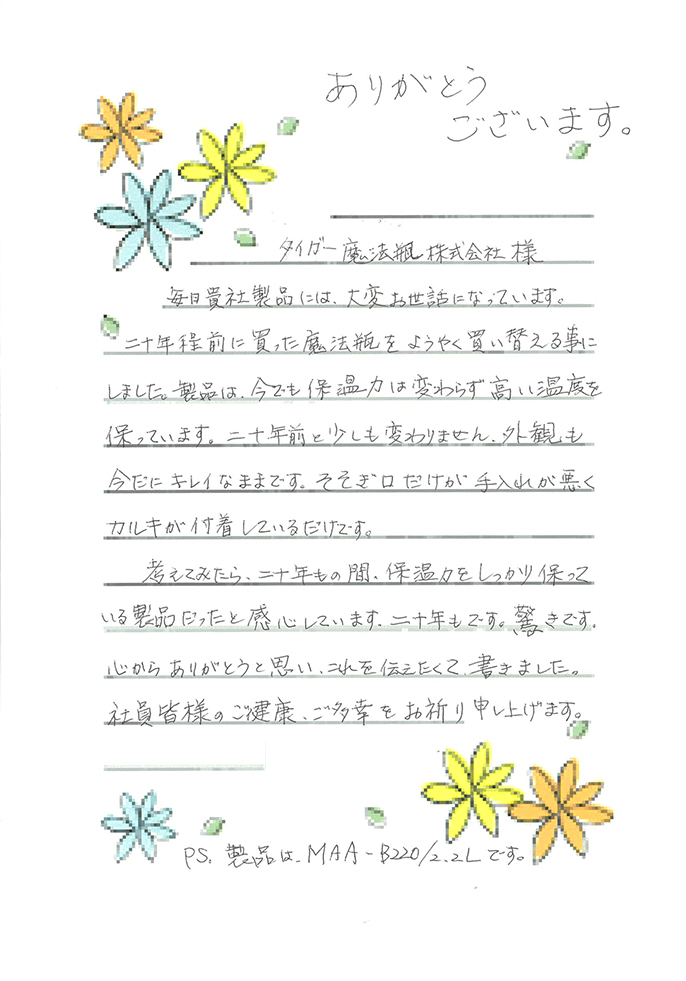 ありがとう
ございます。
タイガー魔法瓶株式会社様
毎日貴社製品には、大変お世話になっています。
二十年程前に買った魔法瓶をようやく買い替える事に
しました。製品は、今でも保温力は変わらず高い温度を
保っています。二十年前と少しも変わりません、外観も
今だにキレイなままです。そそぎ口だけが手入れが悪く
カルキが付着しているだけです。
考えてみたら、二十年もの間、保温力をしっかり保って
いる製品だったと感心しています、二十年もです。驚きです。
心からありがとうと思い、これを伝えたくて、書きました。
社員皆様のご健康、ご多幸をお祈り申し上げます。
PS. 製品は、MAA-B220/2.2Lです。